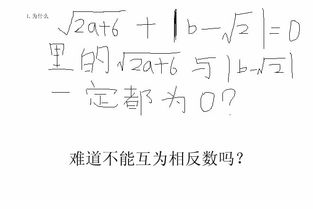 1. 为什么
√(2a+6) + |b-√2|=0
里的√(2a+6) 与|b-√2|
一定都为0?
难道不能互为相反数吗?